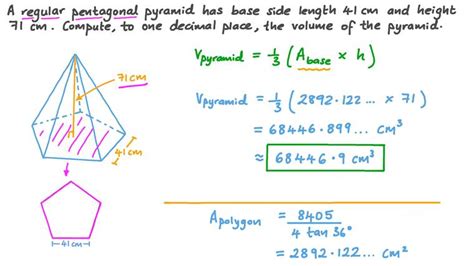 A regular pentagonal pyramid has base side length 41 cm and height
71 cm. Compute, to one decimal place, the volume of the pyramid.
Vpyramid = 1/3 (Abase × h)
71 cm
Vpyramid = 1/3 (2892·122... × 71)
= 68446·899... cm³
≈ 68446·9 cm³
41 cm
Apolygon = 8405 / 4 tan 36°
= 2892·122... cm²
41 cm